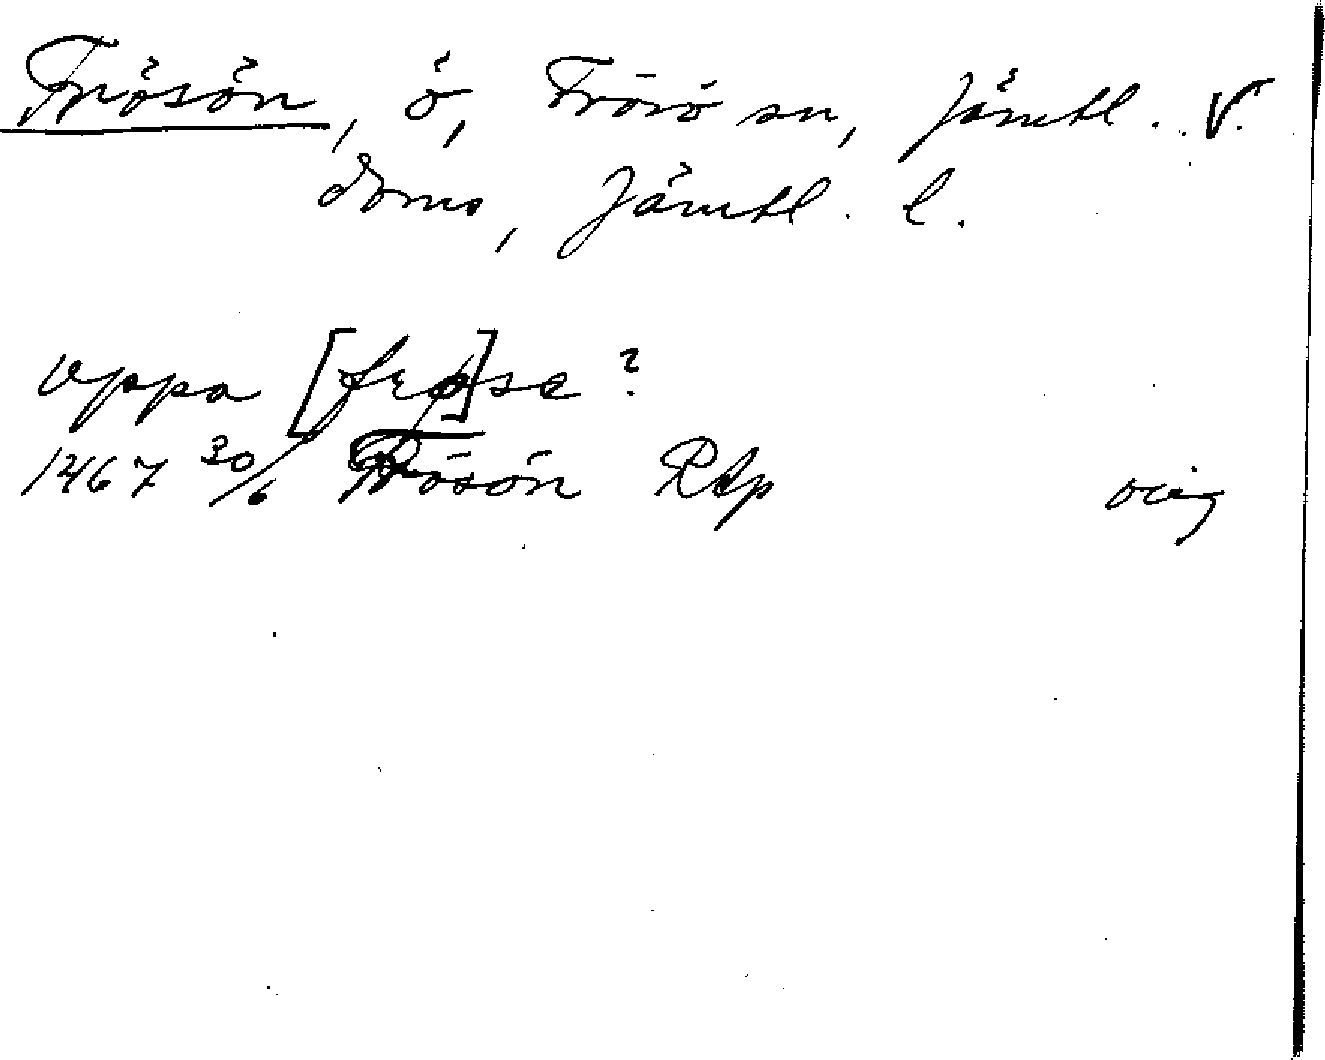 Frösön, ö, Frösö sn, Jämtl. V.
doms, Jämtl. l.
vppa [frø]se ?
1467 30/6 Frösön RAp orig